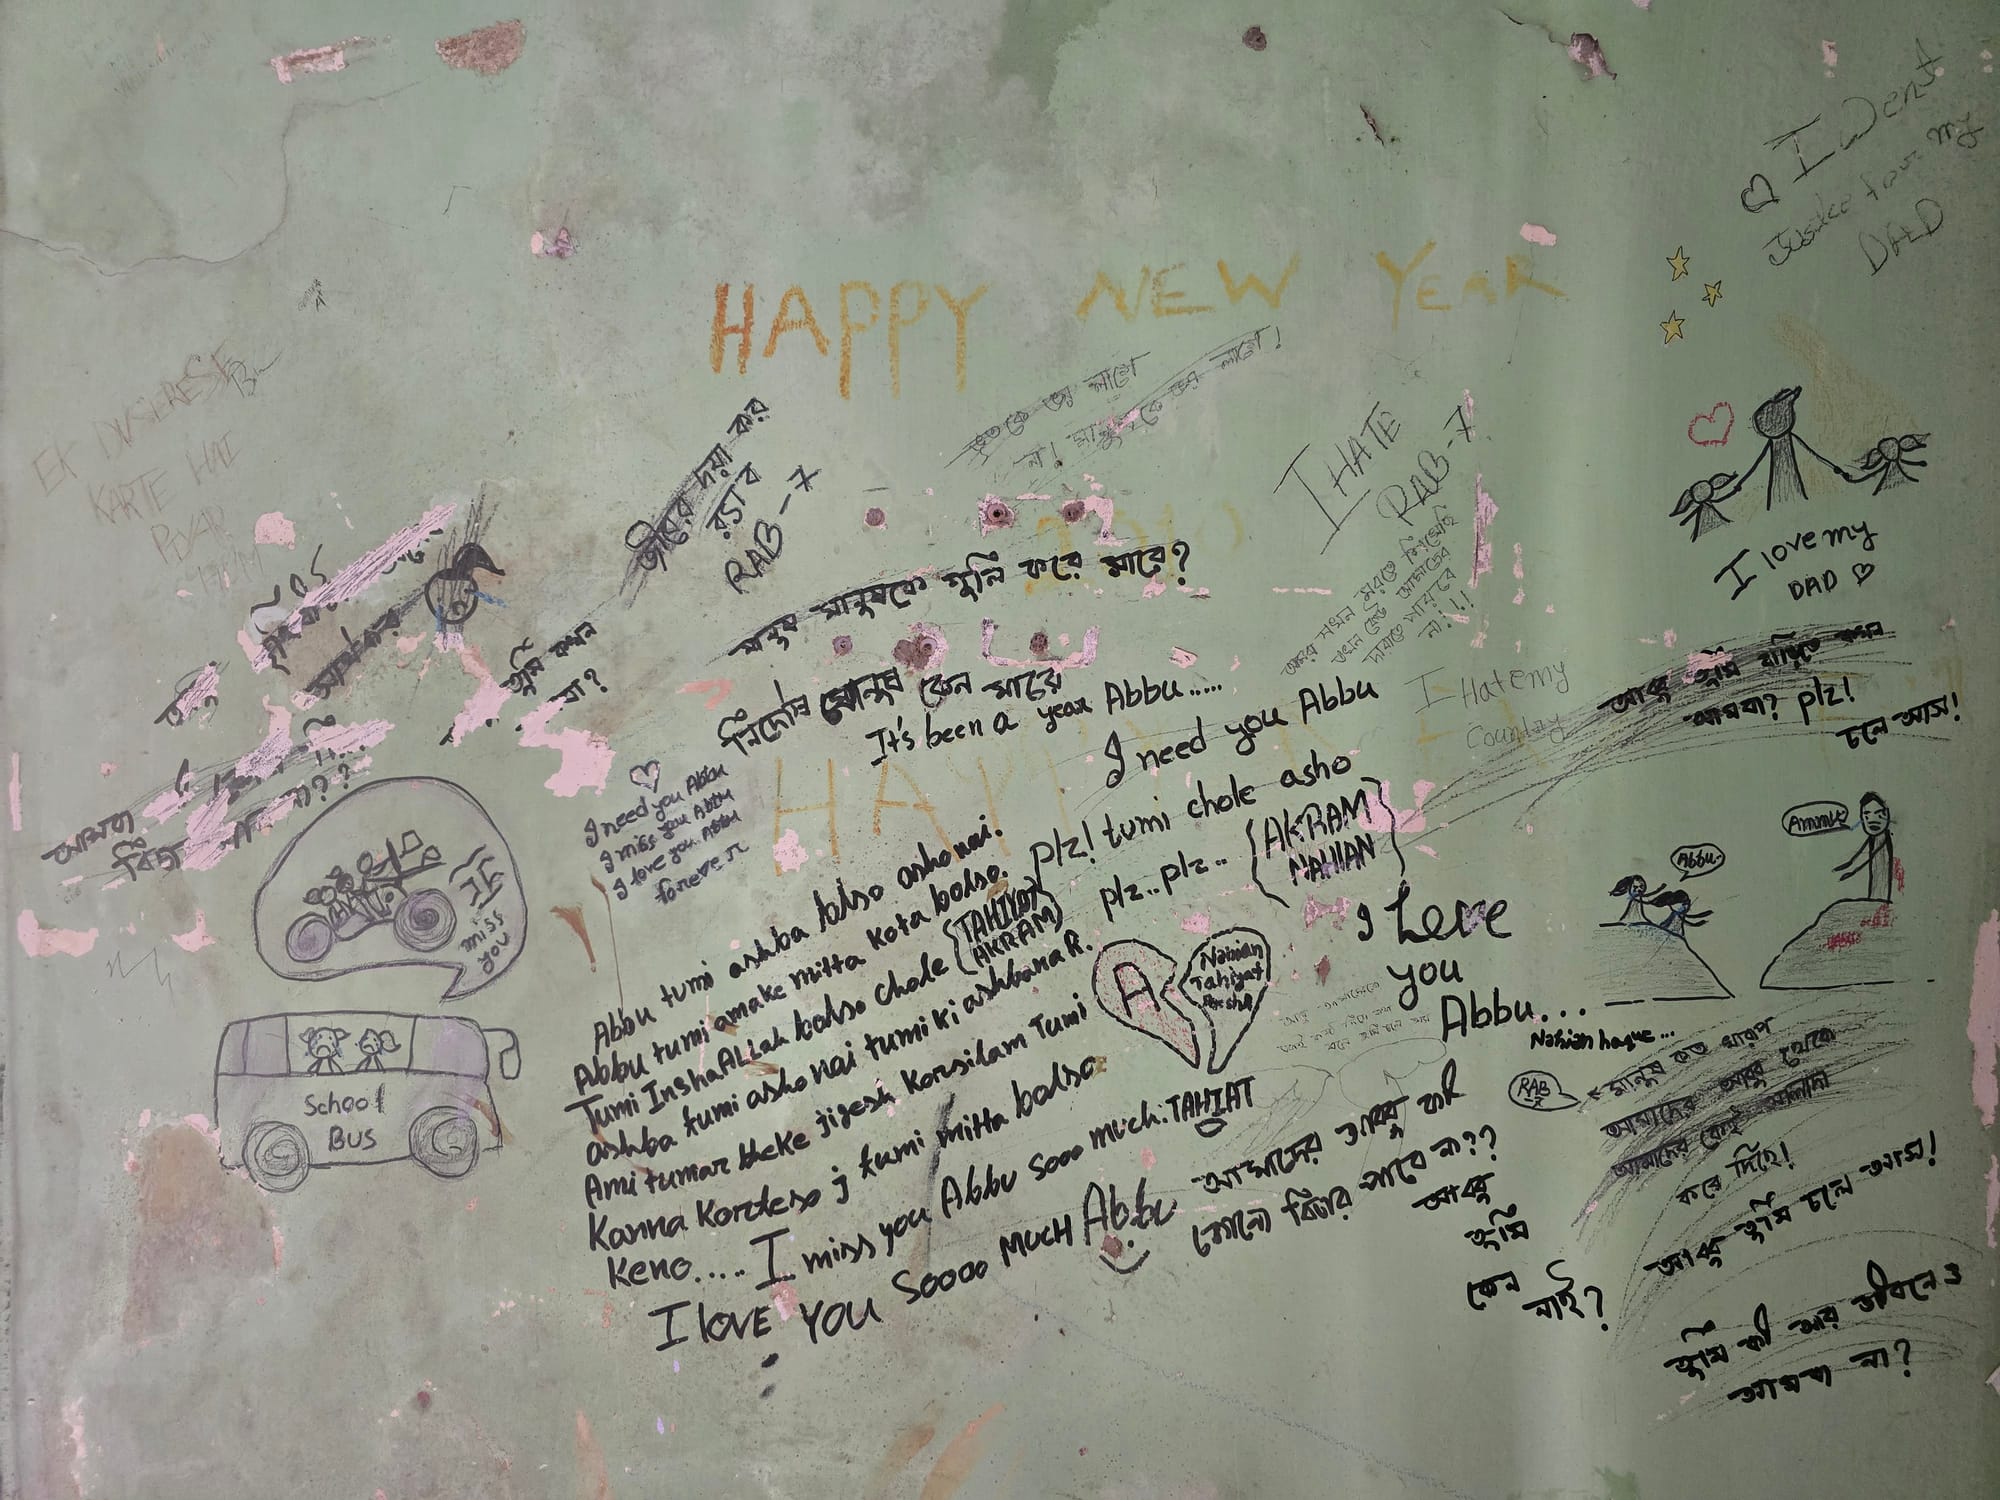 I Went
Justice four my
DAD
HAPPY NEW YEAR
EK DUSERESE
KARTE HAI
PYAR
HUM
ভুতকে ভয় লাগে
না! মানুষকে ভয় লাগে!
I HATE
RAB-7
জীবের দয়া কর
র‍্যাব
RAB-7
মানুষ মানুষকে গুলি করে মারে?
নির্দোষ মানুষ কেন মারে
It's been a year Abbu......
I need you Abbu
plz! tumi chole asho
plz.. plz..
AKRAM
NAHIAN
আমরা যখন মরতে শিখেছি
তখন কেউ আমাদের
দাবাতে পারবে
না!!!
I Hate my
Country
I love my
DAD
আব্বু তুমি বাড়িতে কখন
আসবা? plz!
চলে আস!
তুমি কখন
Abbu.
Ammu
I need you Abbu
I miss you Abbu
I love you Abbu
forever
I
miss
you
School
BUS
Abbu tumi ashba bolso asho nai.
Abbu tumi amake mitta kota bolso.
Tumi InshaALLah bolso chole
TAHIYAT
AKRAM
ashba tumi asho nai tumi ki ashbana R.
Ami tumar theke jigesh korsilam Tumi
Kanna Korteso j tumi mitta bolso
Keno..... I miss you Abbu sooo much. TAHIAT
I LOVE YOU Soooo MUCH Abbu
A
Nahian
Tahiyat
I Love
you
Abbu...
Nahian haque...
RAB
মানুষ কত খারাপ
আমাদের আব্বু থেকে
আমাদের কেই আলাদা
করে দিছে!
আমাদের আব্বু কি
কোনো বিচার পাবে না??
আব্বু
তুমি
কেন
নাই?
আব্বু তুমি চলে আস!
তুমি কী আর জীবনেও
আসবা না?